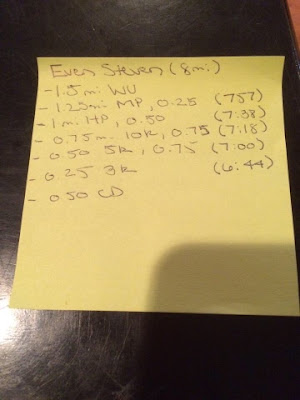 Even Steven (8mi)
- 1.5mi WU
- 1.25mi MP, 0.25 (757)
- 1mi HP, 0.50 (7:38)
- 0.75mi 10k, 0.75 (7:18)
- 0.50 5k, 0.75 (7:00)
- 0.25 3k (6:44)
- 0.50 CD